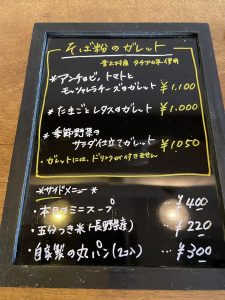 そば粉のガレット
富士村産 タチアカネ使用
*アンチョビ、トマトと
モッツァレラチーズのガレット ¥1.100
*たまごとレタスのガレット ¥1.000
*季節野菜の
サラダ仕立てガレット ¥1050
・ガレットには、ドリンクが付きません
*サイドメニュー*
・本日のミニスープ … ¥400
・五分つき米(長野県産) … ¥220
・自家製の丸パン(2コ入) … ¥300